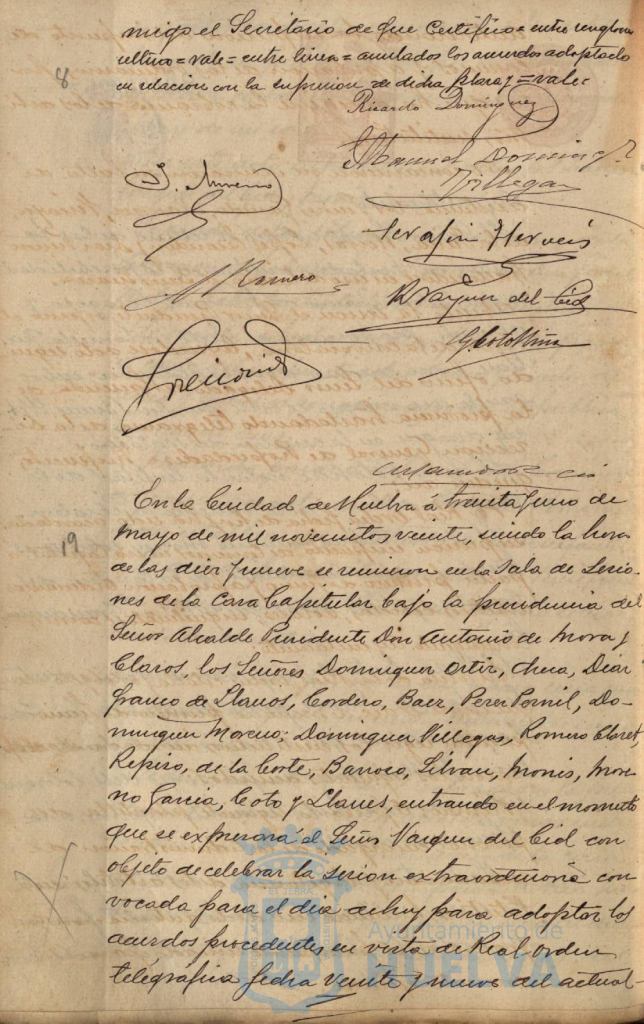 migo el Secretario de que certifico = entre renglones
ultimo = vale = entre linea = anulados los acuerdos adoptados
en relacion con la supresion de dicha plaza y = vale =
8
Ricardo Dominguez
Manuel Doming
Villegas
J. Moreno
Serafin
Romero
R Vazquez del Cid
G. Coto
En la Ciudad de Huelva á treinta y uno de
19
Mayo de mil novecientos veinte, siendo la hora
de las diez y nueve se reunieron en la Sala de Sesio-
nes de la Casa Capitular bajo la presidencia del
Señor Alcalde Presidente Don Antonio de Mora y
Claros, los Señores Dominguez Ortiz, Checa, Diaz
Franco de Llanos, Cordero, Baez, Perez Pornil, Do-
minguez Moreno; Dominguez Villegas, Romero Claret,
Repiso, de la Corte, Barroso, Silvan, Monis, More
no Garcia, Coto y Llanes, entrando en el momento
que se expresará el Señor Vazquez del Cid con
objeto de celebrar la sesion extraordinaria con
vocada para el dia de hoy para adoptar los
acuerdos procedentes en vista de Real orden
telegrafica fecha veinte y nueve del actual-
Ayuntamiento de
HUELVA